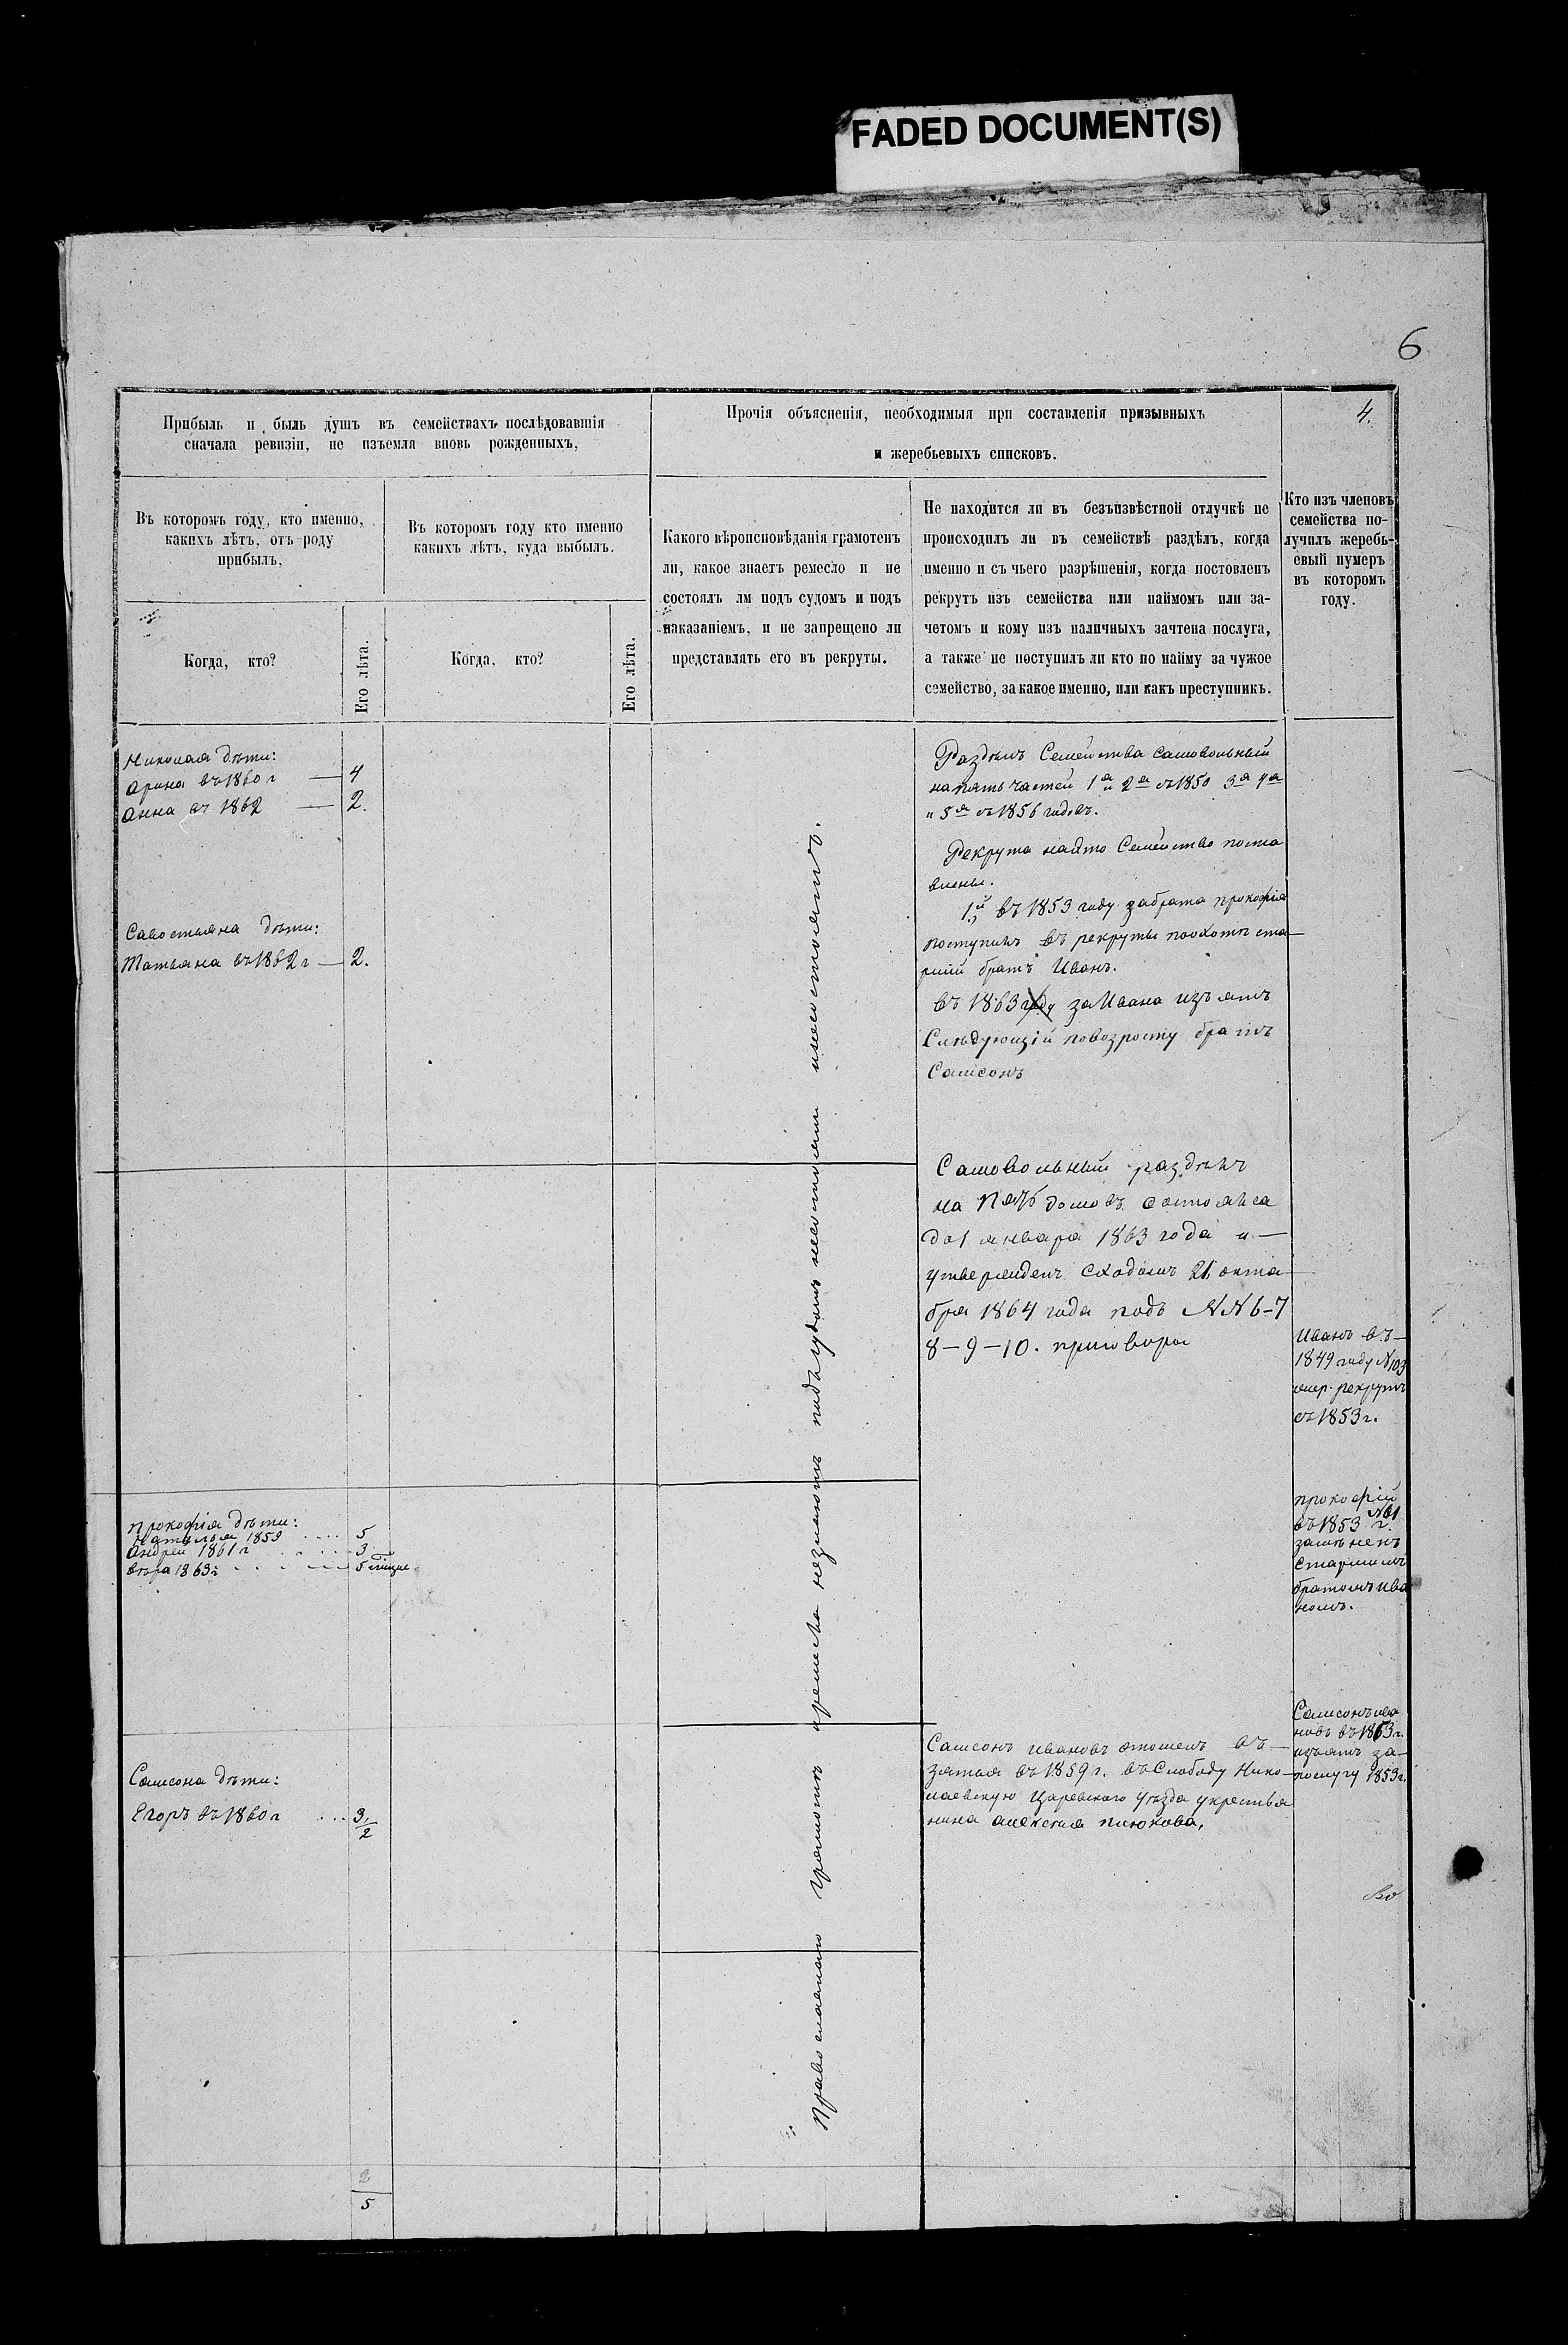 FADED DOCUMENT(S)
6
4.
Прибыль и быль душъ въ семействахъ послѣдовавшія
сначала ревизіи, не изъемля вновь рожденныхъ,
Прочія объясненія, необходимыя при составленія призывныхъ
и жеребьевыхъ списковъ.
Въ которомъ году, кто именно,
какихъ лѣтъ, отъ роду
прибылъ,
Въ которомъ году кто именно
какихъ лѣтъ, куда выбылъ.
Какого вѣроисповѣданія грамотенъ
ли, какое знаетъ ремесло и не
состоялъ лм подъ судомъ и подъ
наказаніемъ, и не запрещено ли
представлять его въ рекруты.
Не находится ли въ безъизвѣстной отлучкѣ не
происходилъ ли въ семействѣ раздѣлъ, когда
именно и съ чьего разрѣшенія, когда поставленъ
рекрутъ изъ семейства или наймомъ или за-
четомъ и кому изъ наличныхъ зачтена послуга,
а также не поступилъ ли кто по найму за чужое
семейство, за какое именно, или какъ преступникъ.
Кто изъ членовъ
семейства по-
лучилъ жеребь-
евый нумеръ
въ которомъ
году.
Когда, кто?
Его лѣта.
Когда, кто?
Его лѣта.
Николая дѣти:
Арина въ 1860 г — 4
Анна въ 1862 — 2.
Савостьяна дѣти:
Татьяна въ 1862 г — 2.
Прокофія дѣти:
Наталья 1859 .... 5
Андрей 1861 г .... 3
Вѣра 1863 г .... 5
Самсона дѣти:
Егоръ въ 1860 г .... 3/2
2
5
Православнаго грамотѣ ремесла незнаютъ подъ судомъ несостояли и несостоятъ.
Раздѣлъ Семейства самовольный
на пять частей 1а и 2а съ 1850 3я 4я
и 5я съ 1856 годовъ.
Рекрута на это Семейство поста
влены.
1й въ 1853 году за брата прокофія
поступилъ въ рекруты поохотѣ ста—
ршій братъ Иванъ.
въ 1863 году за Ивана изъятъ
Слѣдующій повозрасту братъ
Самсонъ
Самовольный раздѣлъ
на пять домовъ состоялся
до 1 января 1863 года и —
утвержденъ Сходомъ 21 октя—
бря 1864 года подъ NN 6-7
8-9-10. приговора
Самсонъ Ивановъ отошелъ въ—
зятья въ 1859 г. въ Слободу Нико—
лаевскую Царевскаго уѣзда укрестья
нина алексѣя
Иванъ въ—
1849 году N 103
рекрутъ
съ 1853 г.
прокофій
въ 1853 г. N 61
замѣненъ
старшимъ
братомъ Ива
номъ.
Самсонъ Ива
новъ въ 1863 г.
изъятъ за—
послугу 1853 г.